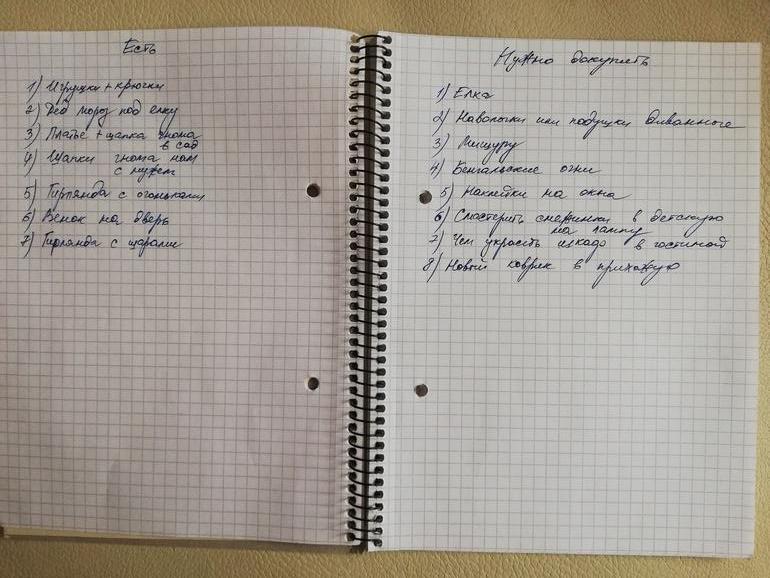 Есть
1) Игрушки + крючки
2) Дед мороз под елку
3) Платье + шапка гнома
в сад
4) Шапки гнома нам
с мужем
5) Гирлянда с огоньками
6) Венок на дверь
7) Гирлянда с шарами
Нужно докупить
1) Елка
2) Наволочки или подушки диванные
3) Мишуру
4) Бенгальские огни
5) Наклейки на окна
6) Смастерить снежинки в детскую
на лампу
7) Чем украсить в гостиной
8) Новый коврик в прихожую